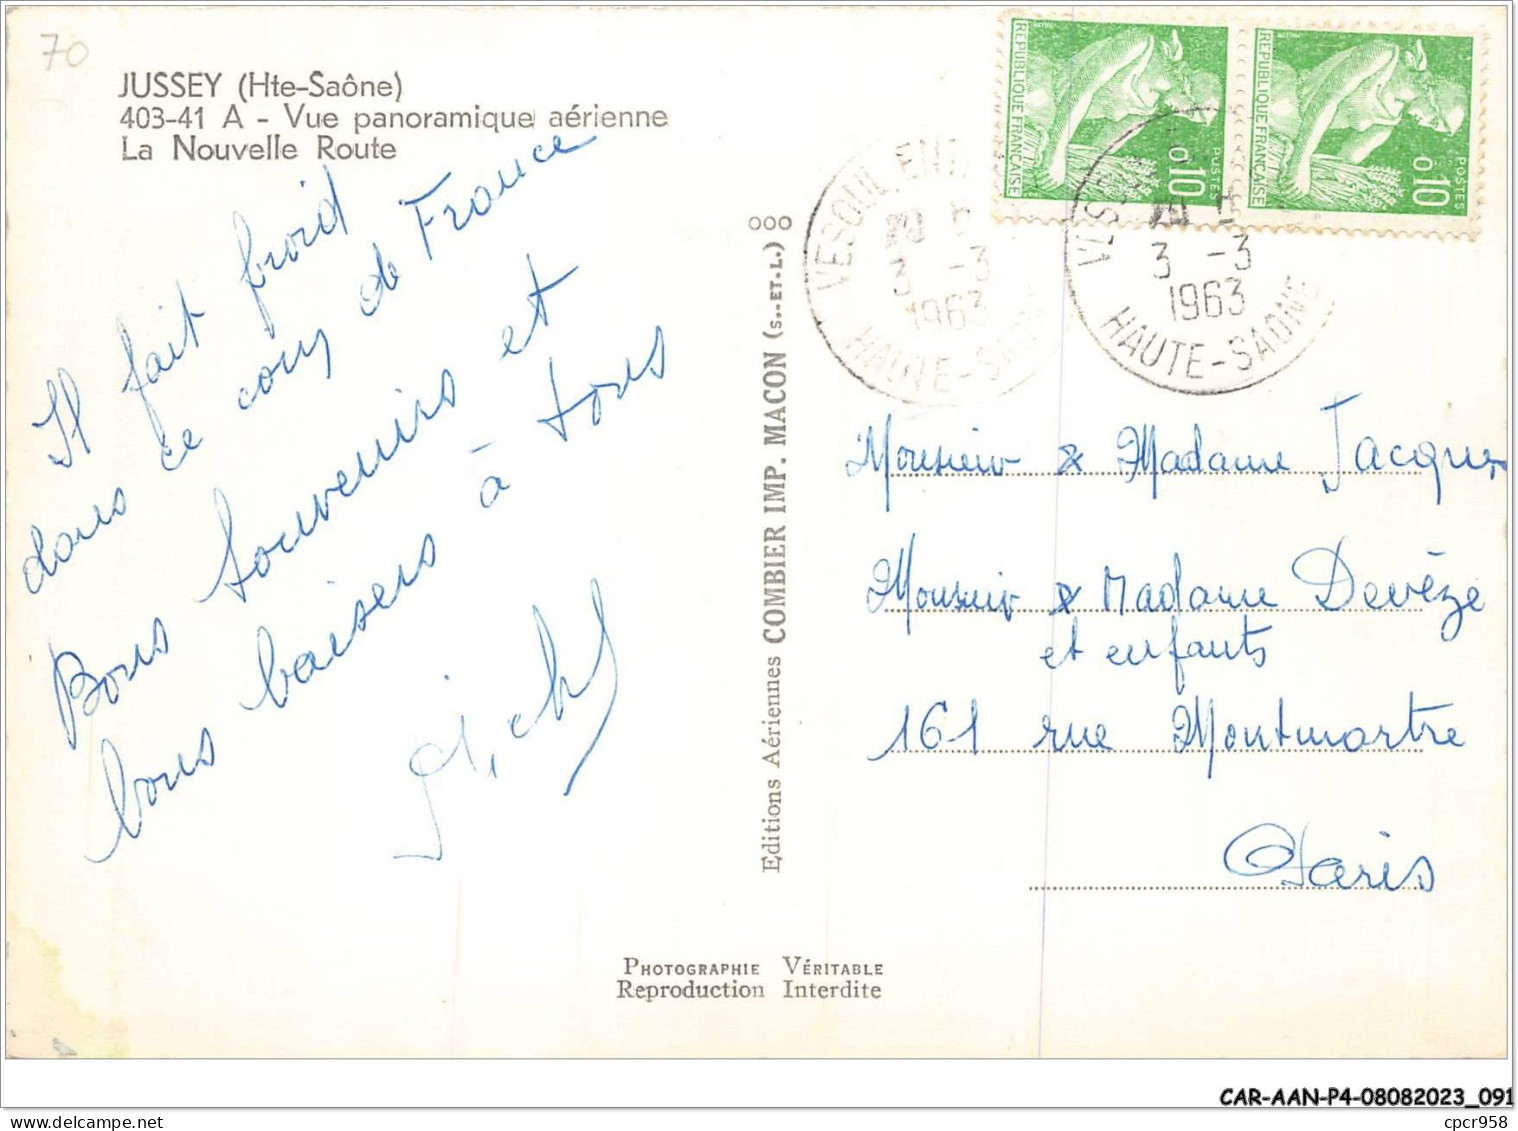 70
JUSSEY (Hte-Saône)
403-41 A - Vue panoramique aérienne
La Nouvelle Route
Il fait froid
dans ce coin de France
Bons souvenirs et
bons baisers à tous
OOO
Editions Aériennes COMBIER IMP. MACON (S.-ET-L.)
REPUBLIQUE FRANÇAISE
POSTES
0,10
REPUBLIQUE FRANÇAISE
POSTES
0,10
VESOUL
3 -3
1963
HAUTE-SAONE
VESOUL
3 -3
1963
HAUTE-SAONE
Monsieur & Madame Jacques
Monsieur & Madame Devèze
et enfants
161 rue Montmartre
Paris
PHOTOGRAPHIE VÉRITABLE
Reproduction Interdite
CAR-AAN-P4-08082023_091
cpcr958